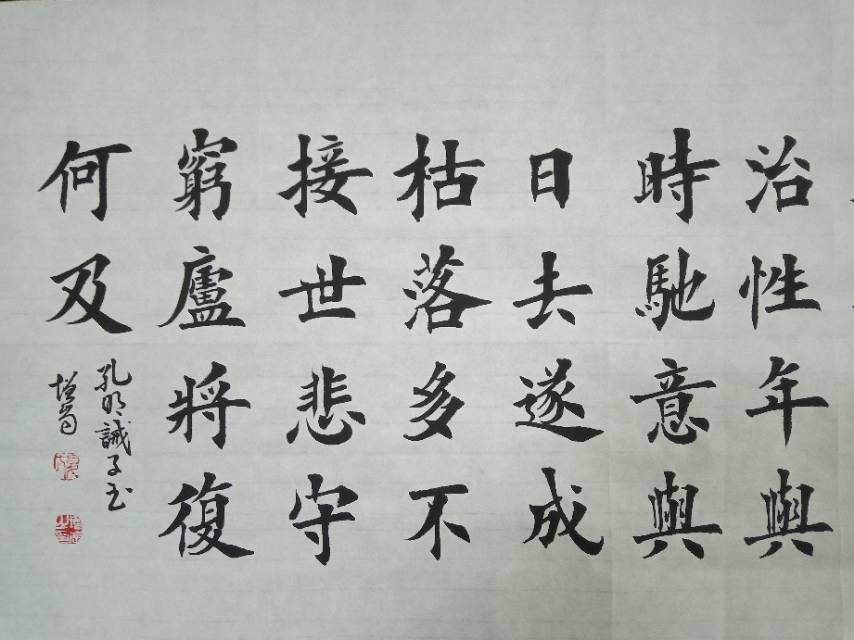 治性年與
時馳意與
日去遂成
枯落多不
接世悲守
窮廬將復
何及
孔明誡子书